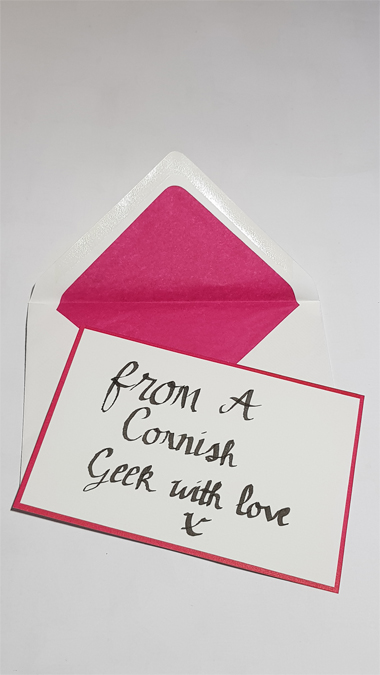 from A
Cornish
Geek with love
x